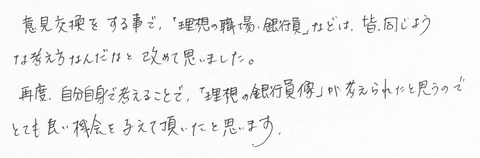 意見交換をする事で、「理想の職場、銀行員」などは、皆、同じよう
な考え方なんだなと改めて思いました。
再度、自分自身で考えることで、「理想の銀行員像」が考えられたと思うので
とても良い機会を与えて頂いたと思います。